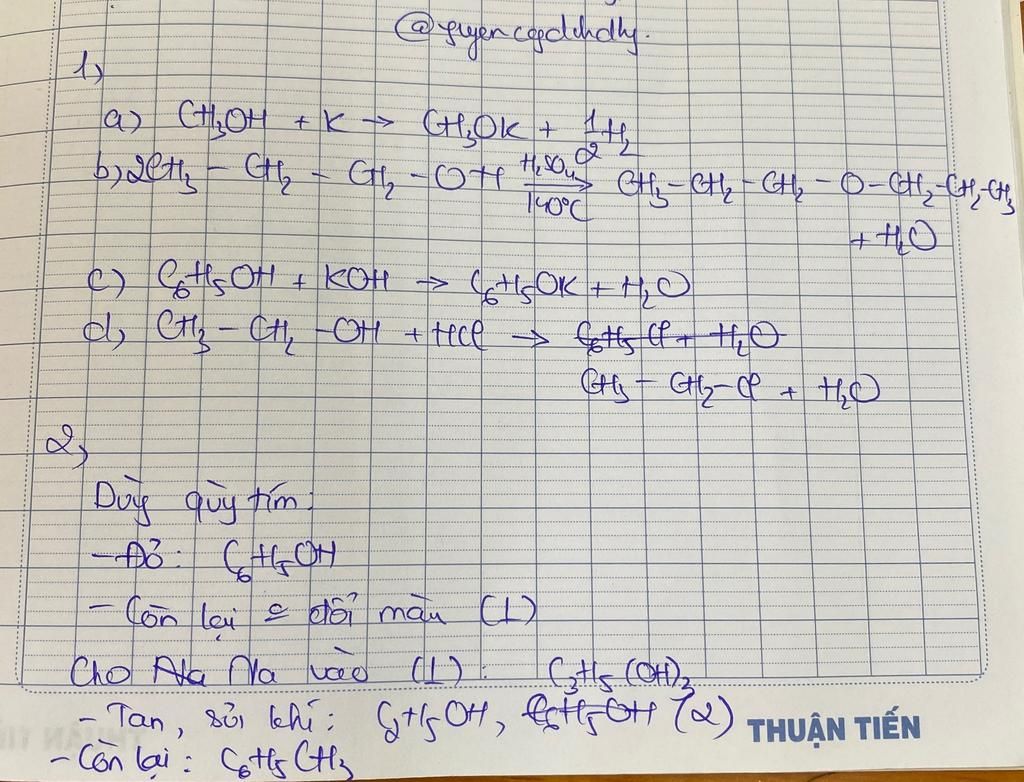 1,
a) CH₃OH + K → CH₃OK + 1/2 H₂
b, 2CH₃ – CH₂ – CH₂ – OH H₂SO₄ 140°C → CH₃ – CH₂ – CH₂ – O – CH₂ – CH₂ – CH₃
+ H₂O
c) C₆H₅OH + KOH → C₆H₅OK + H₂O
d, CH₃ – CH₂ – OH + HCl → C₆H₅Cl + H₂O
CH₃ – CH₂ – Cl + H₂O
2,
Dùng quỳ tím:
– Đỏ: C₆H₅OH
– Còn lại đổi màu (1)
Cho Na vào (1): C₃H₅(OH)₃
– Tan, sủi khí: C₂H₅OH, C₆H₅OH (2)
– Còn lại: C₆H₅CH₃
THUẬN TIẾN